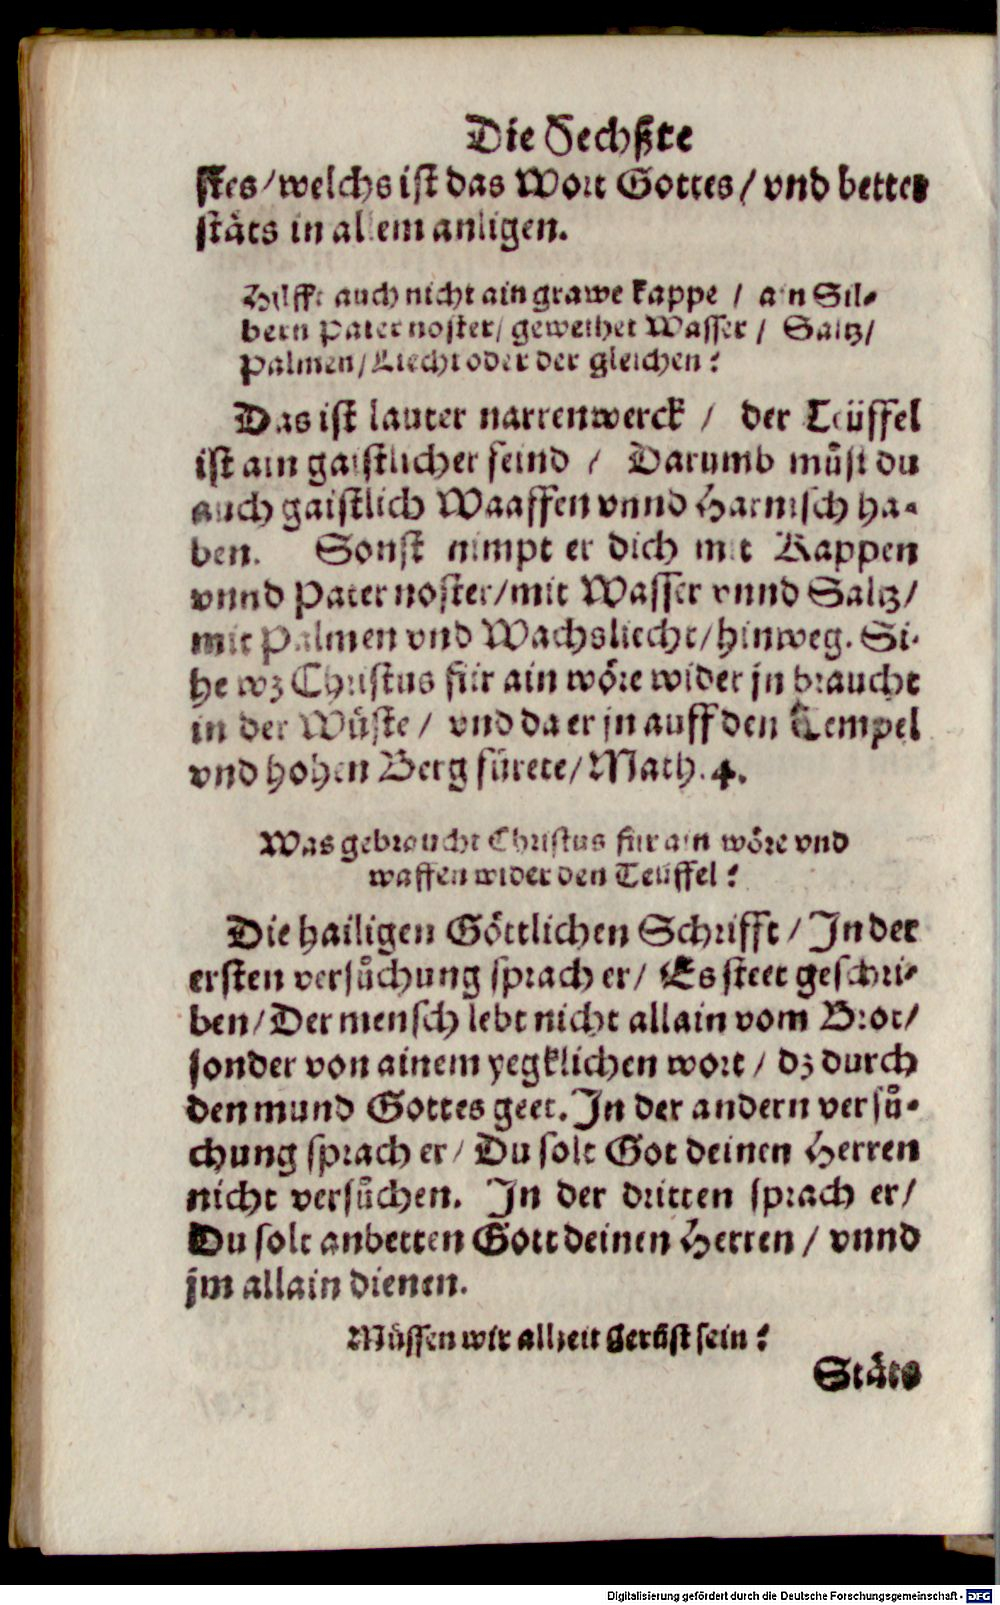 Die Sechßte
stes/welchs ist das Wort Gottes/vnd bettet
stäts in allem anligen.
Hilfft auch nicht ain grawe kappe / ain Sil-
bern Pater noster/ geweihet Wasser / Saltz/
Palmen/Liecht oder der gleichen?
Das ist lauter narrenwerck / der Teüffel
ist ain gaistlicher feind / Darumb můst du
auch gaistlich Waaffen vnnd Harnisch ha-
ben. Sonst nimpt er dich mit Kappen
vnnd Pater noster/mit Wasser vnnd Saltz/
mit Palmen vnd Wachsliecht/hinweg. Si-
he wz Christus für ain wöre wider jn braucht
in der Wüste / vnd da er jn auff den Tempel
vnd hohen Berg fürete/Math.4.
Was gebraucht Christus für ain wöre vnd
waffen wider den Teüffel?
Die hailigen Göttlichen Schrifft / In der
ersten versůchung sprach er/ Es steet geschri-
ben/Der mensch lebt nicht allain vom Brot/
sonder von ainem yegklichen wort / dz durch
den mund Gottes geet. In der andern versů-
chung sprach er/ Du solt Got deinen Herren
nicht versůchen. In der dritten sprach er/
Du solt anbetten Gott deinen Herren / vnnd
jm allain dienen.
Müssen wir allzeit gerüst sein?
Stäts
Digitalisierung gefördert durch die Deutsche Forschungsgemeinschaft - DFG